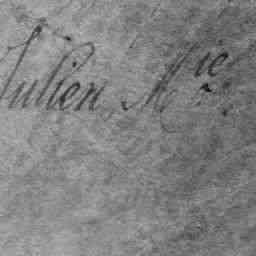 Julien, M.ie